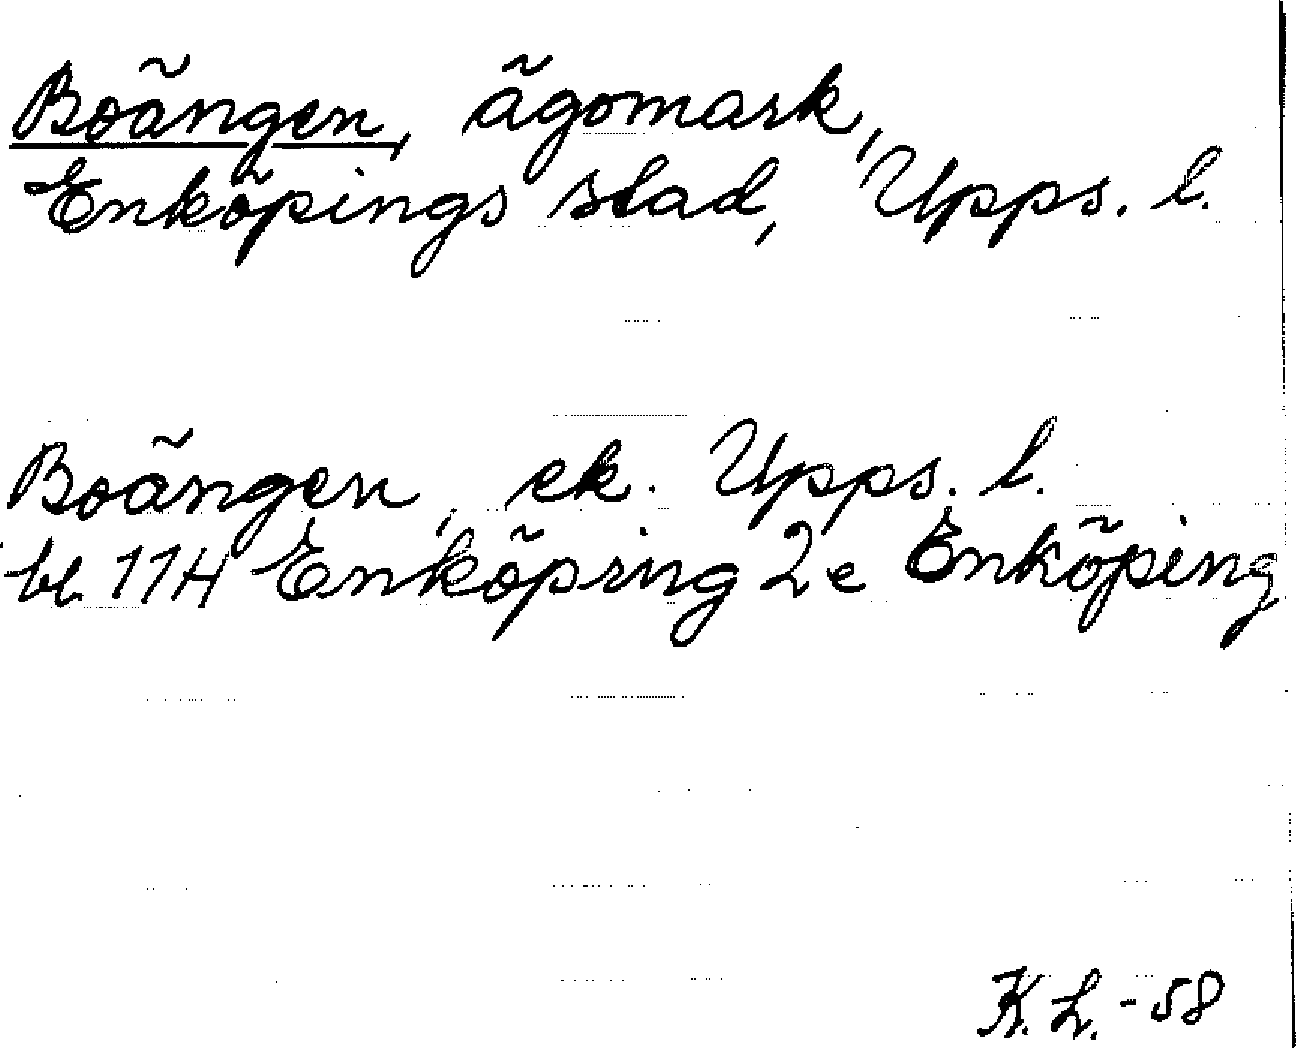 Boängen, ägomark,
Enköpings stad, Upps. l.
Boängen, ek. Upps. l.
bl. 11H Enköping 2e Enköping
K. L. -58